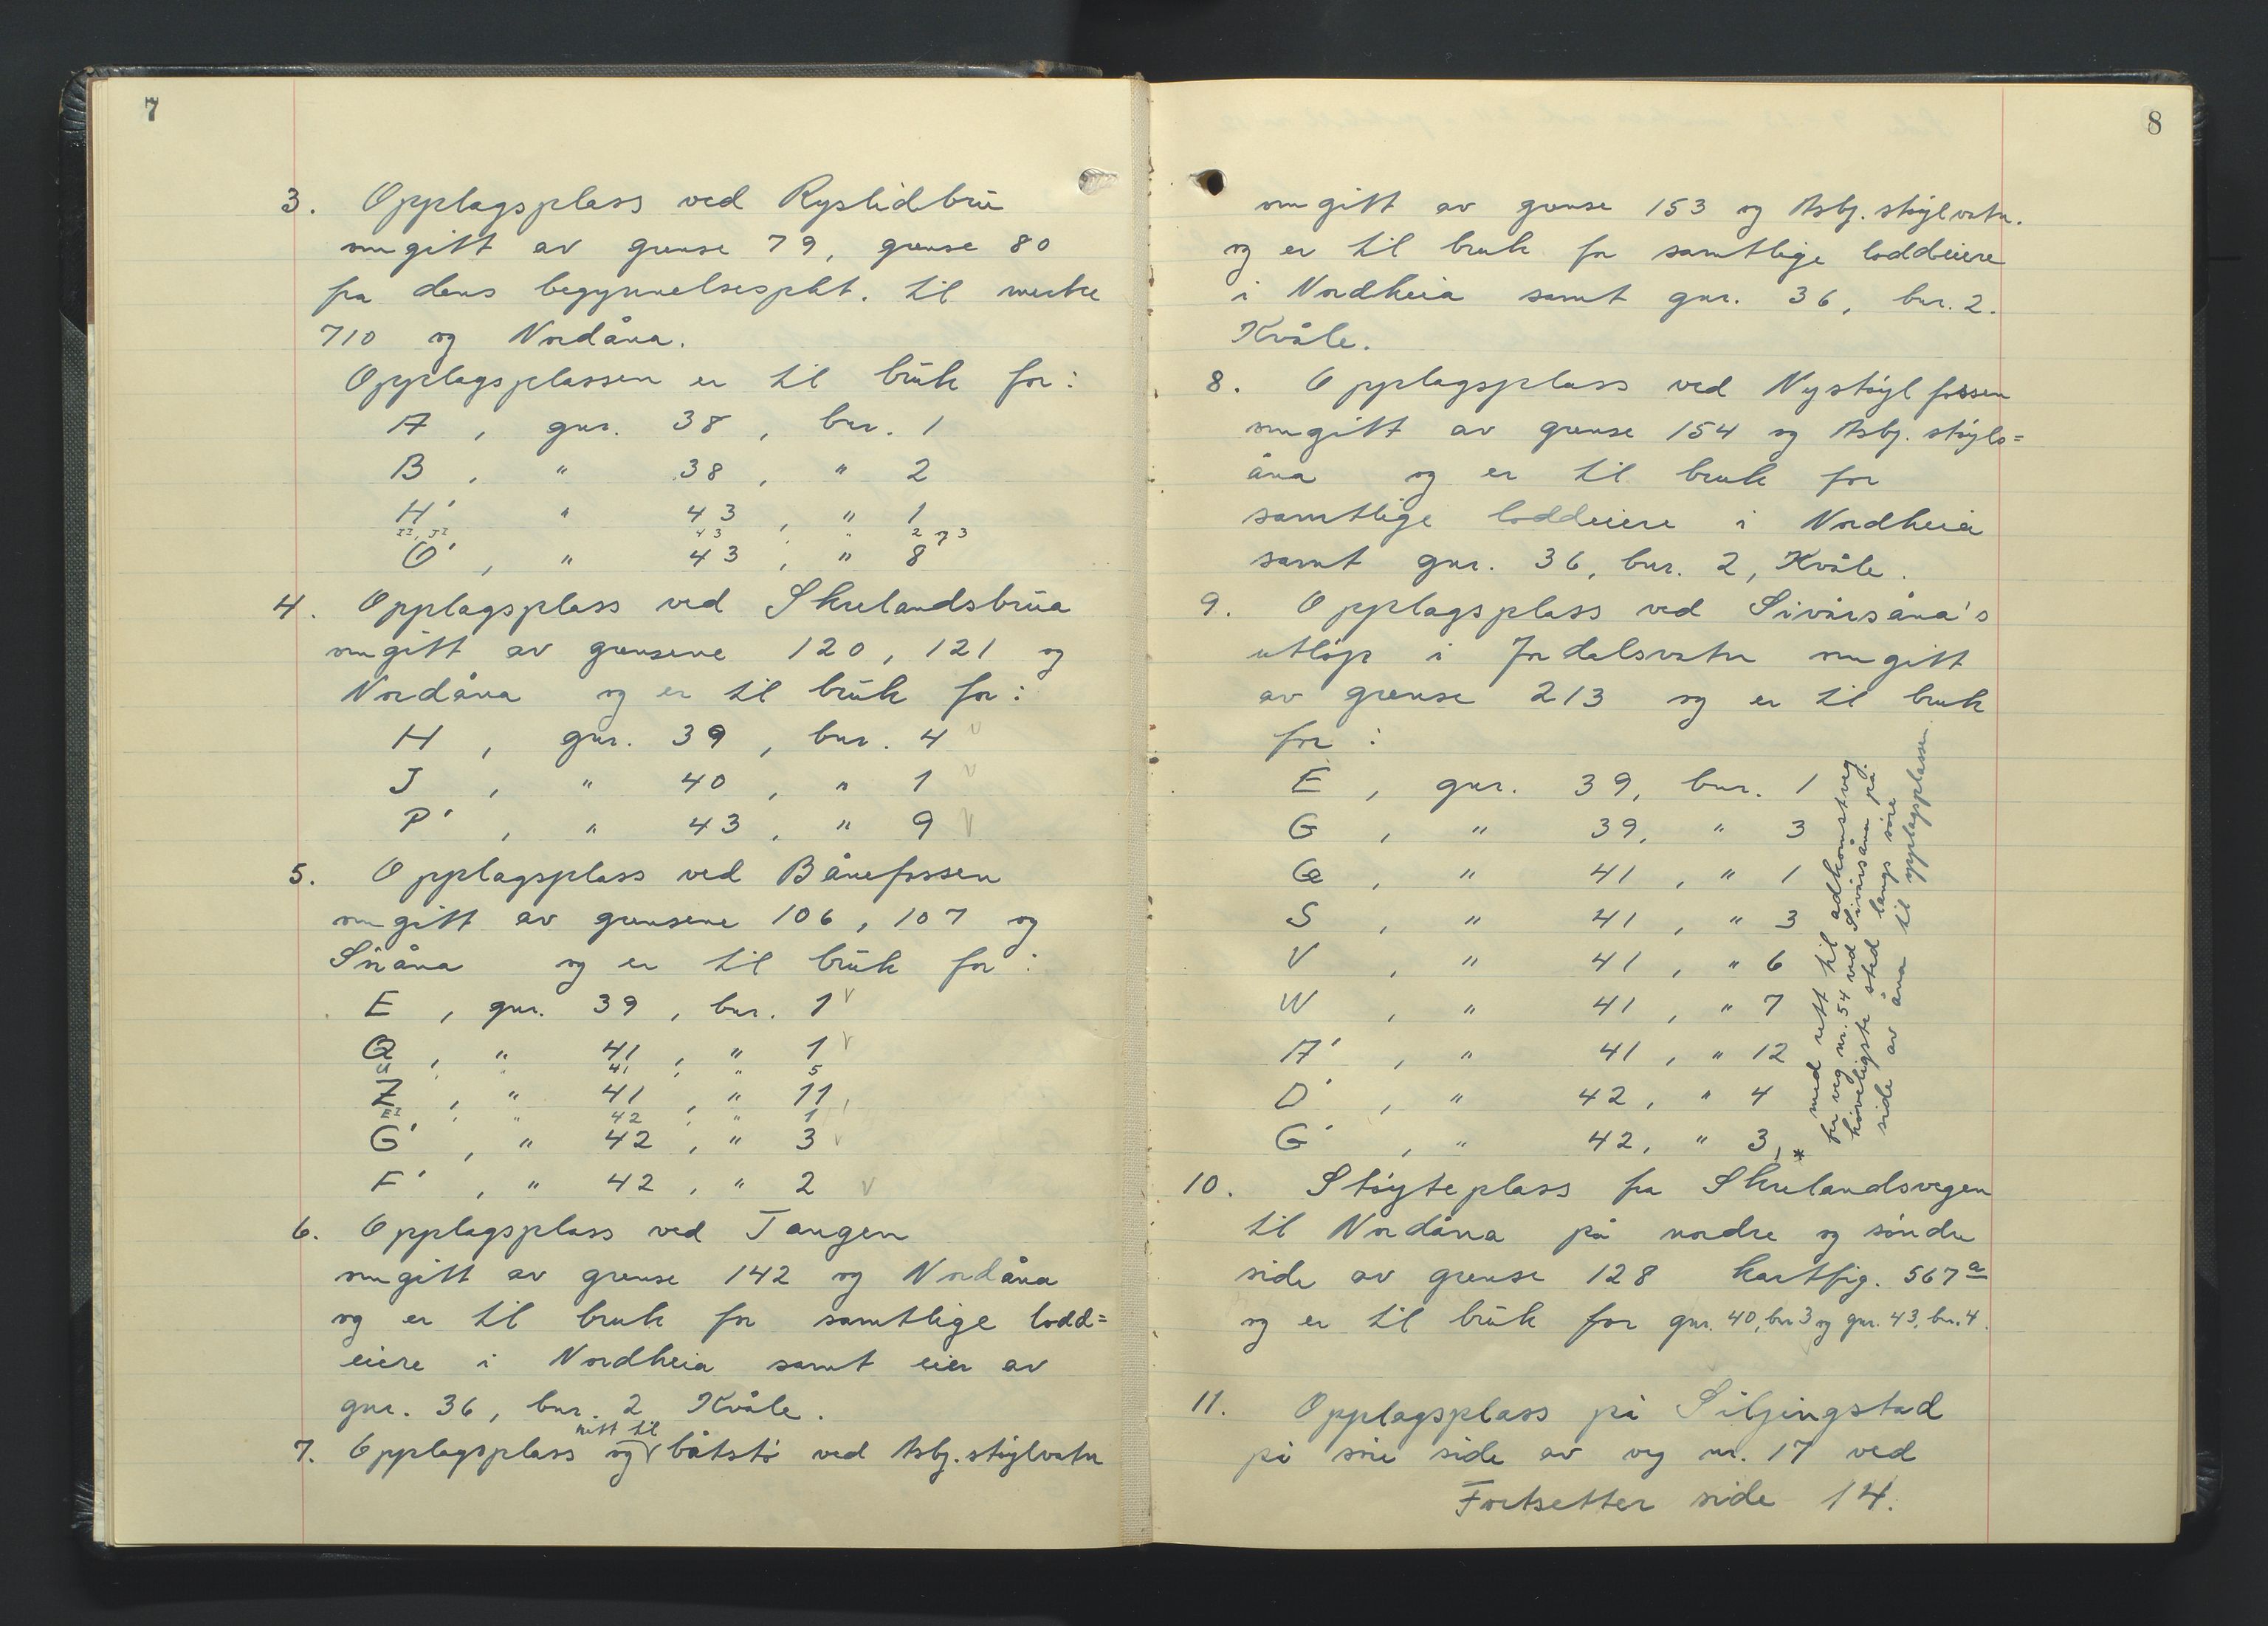 7
3. Opplagsplass ved Ryslidbru
omgitt av grense 79, grense 80
fra dens begynnelsespkt. til merke
710 og Nordåna.
Opplagsplassen er til bruk for:
A , gnr. 38 , bnr. 1
B , " 38 , " 2
H' " 43 , " 1
43 , " 2 og 3
O' , " 43 , " 8
4. Opplagsplass ved Skrelandsbrua
omgitt av grensene 120, 121 og
Nordåna og er til bruk for:
H , gnr. 39 , bnr. 4 v
J , " 40 , " 1 v
P' , " 43 , " 9 v
5. Opplagsplass ved Bånefossen
omgitt av grensene 106, 107 og
Søråna og er til bruk for:
E , gnr. 39 , bnr. 1 v
Q , " 41 , " 1 v
U , " 41 , " 5
Z , " 41 , " 11
E' , " 42 , " 1
G' , " 42 , " 3 v
F' , " 42 , " 2 v
6. Opplagsplass ved Tangen
omgitt av grense 142 og Nordåna
og er til bruk for samtlige lodd=
eiere i Nordheia samt eier av
gnr. 36, bnr. 2 Kvåle.
rett til
7. Opplagsplass og båtstø ved Asbj.støylvatn
8
omgitt av grense 153 og Asbj.støylvatn.
og er til bruk for samtlige loddeiere
i Nordheia samt gnr. 36, bnr. 2.
Kvåle.
8. Opplagsplass ved Nystøylfossen
omgitt av grense 154 og Asbj.støyls=
åna og er til bruk for
samtlige loddeiere i Nordheia
samt gnr. 36, bnr. 2, Kvåle.
9. Opplagsplass ved Sivårsåna's
utløp i Jordalsvatn omgitt
av grense 213 og er til bruk
for :
E , gnr. 39, bnr. 1
G , " 39, " 3
Q , " 41 , " 1
S , " 41 , " 3
V , " 41 , " 6
W , " 41 , " 7
A' , " 41 , " 12
D' , " 42 , " 4
G' , " 42, " 3, *
med rett til adkomstveg
fra veg nr. 54 ved Sivårsåna på
høveligste sted langs søre
side av åna til opplagsplassen
10. Støyteplass fra Skrelandsvegen
til Nordåna på nordre og søndre
side av grense 128 kartfig. 567a
og er til bruk for gnr. 40, bnr 3 og gnr. 43, bnr. 4.
11. Opplagsplass på Siljingstad
på søre side av veg nr. 17 ved
Fortsetter side 14.